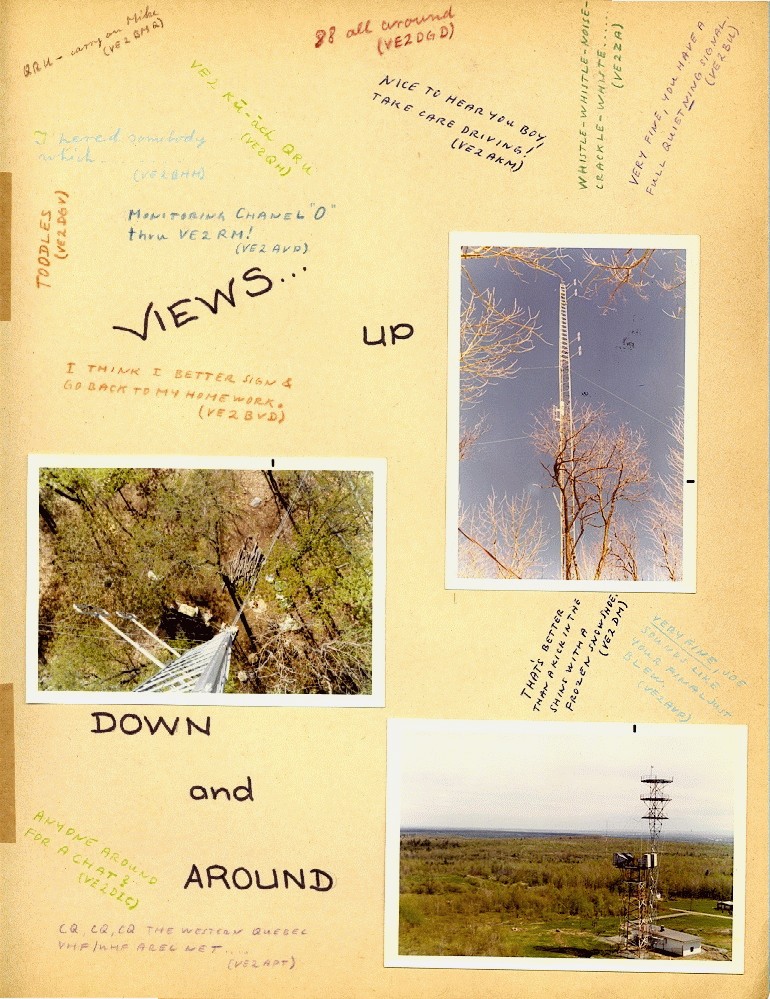 QRU - carry on Mike
(VE2BMQ)
88 all around
(VE2DGD)
WHISTLE-WHISTLE-NOISE-
CRACKLE-WHUTE.....
(VE2ZA)
VERY FINE, YOU HAVE A
FULL QUIETNING SIGNAL
(VE2BU)
VE2 KU-ück QRU
(VE2QH)
NICE TO HEAR YOU BOY,
TAKE CARE DRIVING!
(VE2AKM)
I hered somebody
which..........
(VE2BHH)
TOODLES
(VE2DGV)
MONITORING CHANEL "0"
thru VE2RM!
(VE2AVP)
VIEWS...
UP
I THINK I BETTER SIGN &
GO BACK TO MY HOMEWORK.
(VE2BVD)
THAT'S BETTER
THAN A KICK IN THE
SHINS WITH A
FROZEN SNOWSHOE.
(VE2DM)
VERY FINE, JOE
SOUNDS LIKE
YOUR FINAL JUST
BLEW
(VE2AVP)
DOWN
and
AROUND
ANYONE AROUND
FOR A CHAT?
(VE2DLC)
CQ, CQ, CQ THE WESTERN QUEBEC
VHF/UHF AREC NET....
(VE2APT)